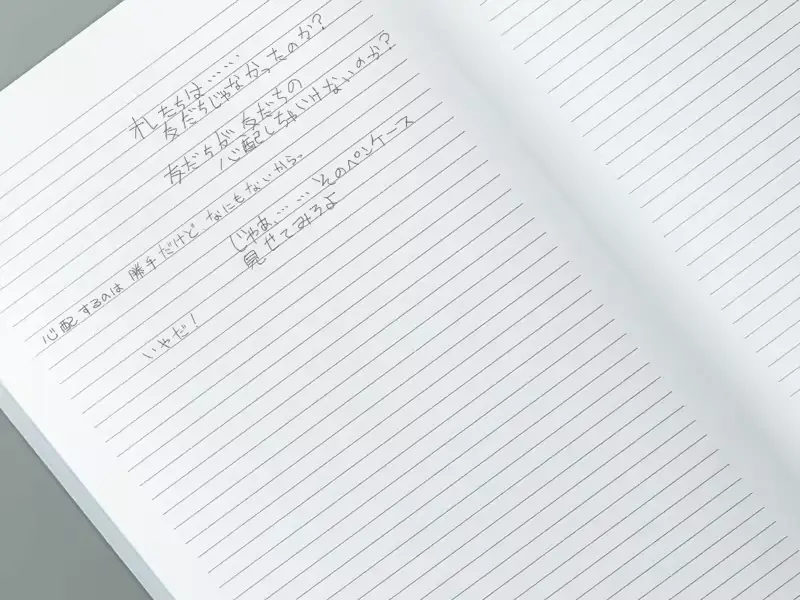 れたちは……
友だちじゃなかったのか？
友だちが、友だちの
心配しちゃいけないのか？
心配するのは勝手だけど、なにもないから。
じゃあ、……そのペンケース
見せてみろよ
いやだ！